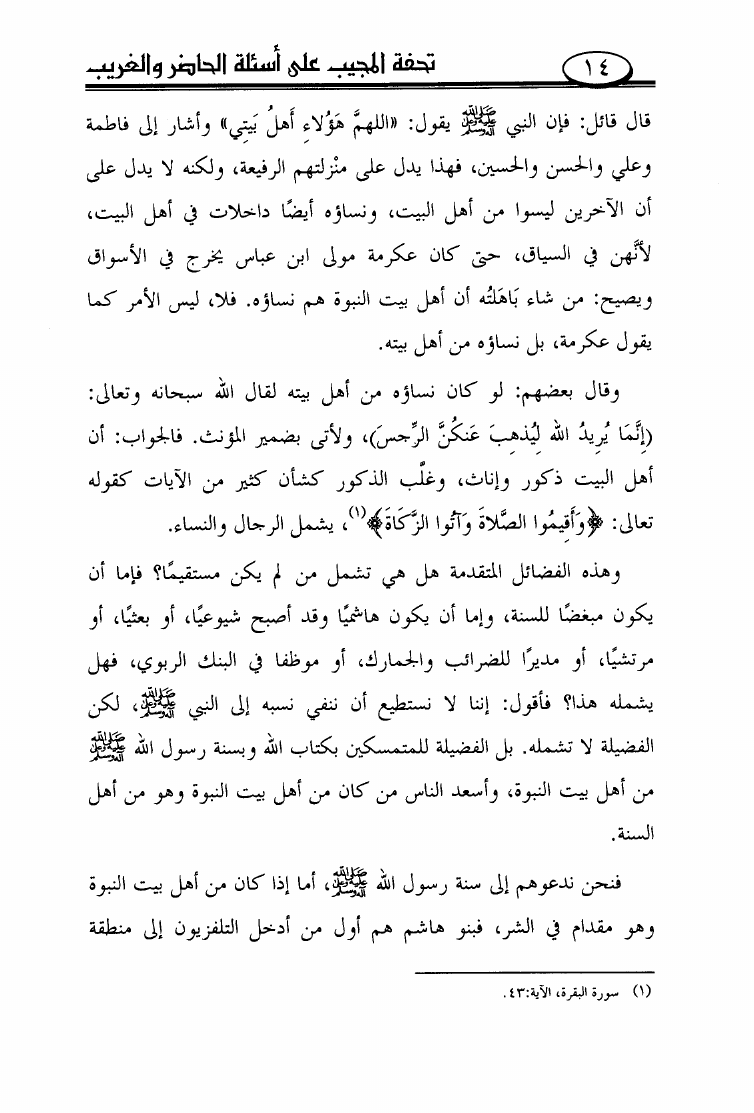 ١٤
تحفة المجيب على أسئلة الحاضر والغريب
قال قائل: فإن النبي ﷺ يقول: «اللهمَّ هَؤُلاءِ أَهلُ بَيتِي» وأشار إلى فاطمة
وعلي والحسن والحسين، فهذا يدل على منْزلتهم الرفيعة، ولكنه لا يدل على
أن الآخرين ليسوا من أهل البيت، ونساؤه أيضًا داخلات في أهل البيت،
لأنَّهن في السياق، حتى كان عكرمة مولى ابن عباس يخرج في الأسواق
ويصيح: من شاء بَاهَلتُه أن أهل بيت النبوة هم نساؤه. فلا، ليس الأمر كما
يقول عكرمة، بل نساؤه من أهل بيته.
وقال بعضهم: لو كان نساؤه من أهل بيته لقال الله سبحانه وتعالى:
(إِنَّمَا يُرِيدُ الله لِيُذهِبَ عَنكُنَّ الرِّجسَ)، ولأتى بضمير المؤنث. فالجواب: أن
أهل البيت ذكور وإناث، وغلَّب الذكور كشأن كثير من الآيات كقوله
تعالى: ﴿وَأَقِيمُوا الصَّلاةَ وَآتُوا الزَّكَاةَ﴾(١)، يشمل الرجال والنساء.
وهذه الفضائل المتقدمة هل هي تشمل من لم يكن مستقيمًا؟ فإما أن
يكون مبغضًا للسنة، وإما أن يكون هاشميًا وقد أصبح شيوعيًا، أو بعثيًا، أو
مرتشيًا، أو مديرًا للضرائب والجمارك، أو موظفا في البنك الربوي، فهل
يشمله هذا؟ فأقول: إننا لا نستطيع أن ننفي نسبه إلى النبي ﷺ، لكن
الفضيلة لا تشمله. بل الفضيلة للمتمسكين بكتاب الله وبسنة رسول الله ﷺ
من أهل بيت النبوة، وأسعد الناس من كان من أهل بيت النبوة وهو من أهل
السنة.
فنحن ندعوهم إلى سنة رسول الله ﷺ، أما إذا كان من أهل بيت النبوة
وهو مقدام في الشر، فبنو هاشم هم أول من أدخل التلفزيون إلى منطقة
(١) سورة البقرة، الآية:٤٣.